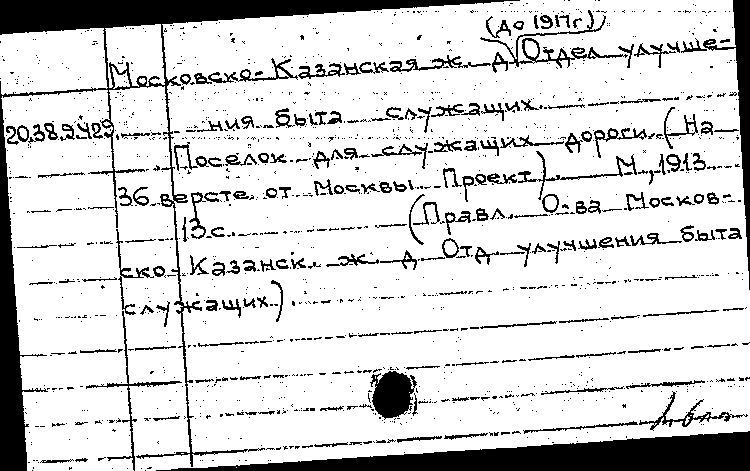 (до 1917г.)
Московско-Казанская ж. д. Отдел улучше-
20.38.9.429. ния быта служащих.
Поселок для служащих дороги. (На
36 версте от Москвы. Проект). М., 1913.
13с. (Правл. О-ва Москов-
ско-Казанск. ж. д. Отд. улучшения быта
служащих).